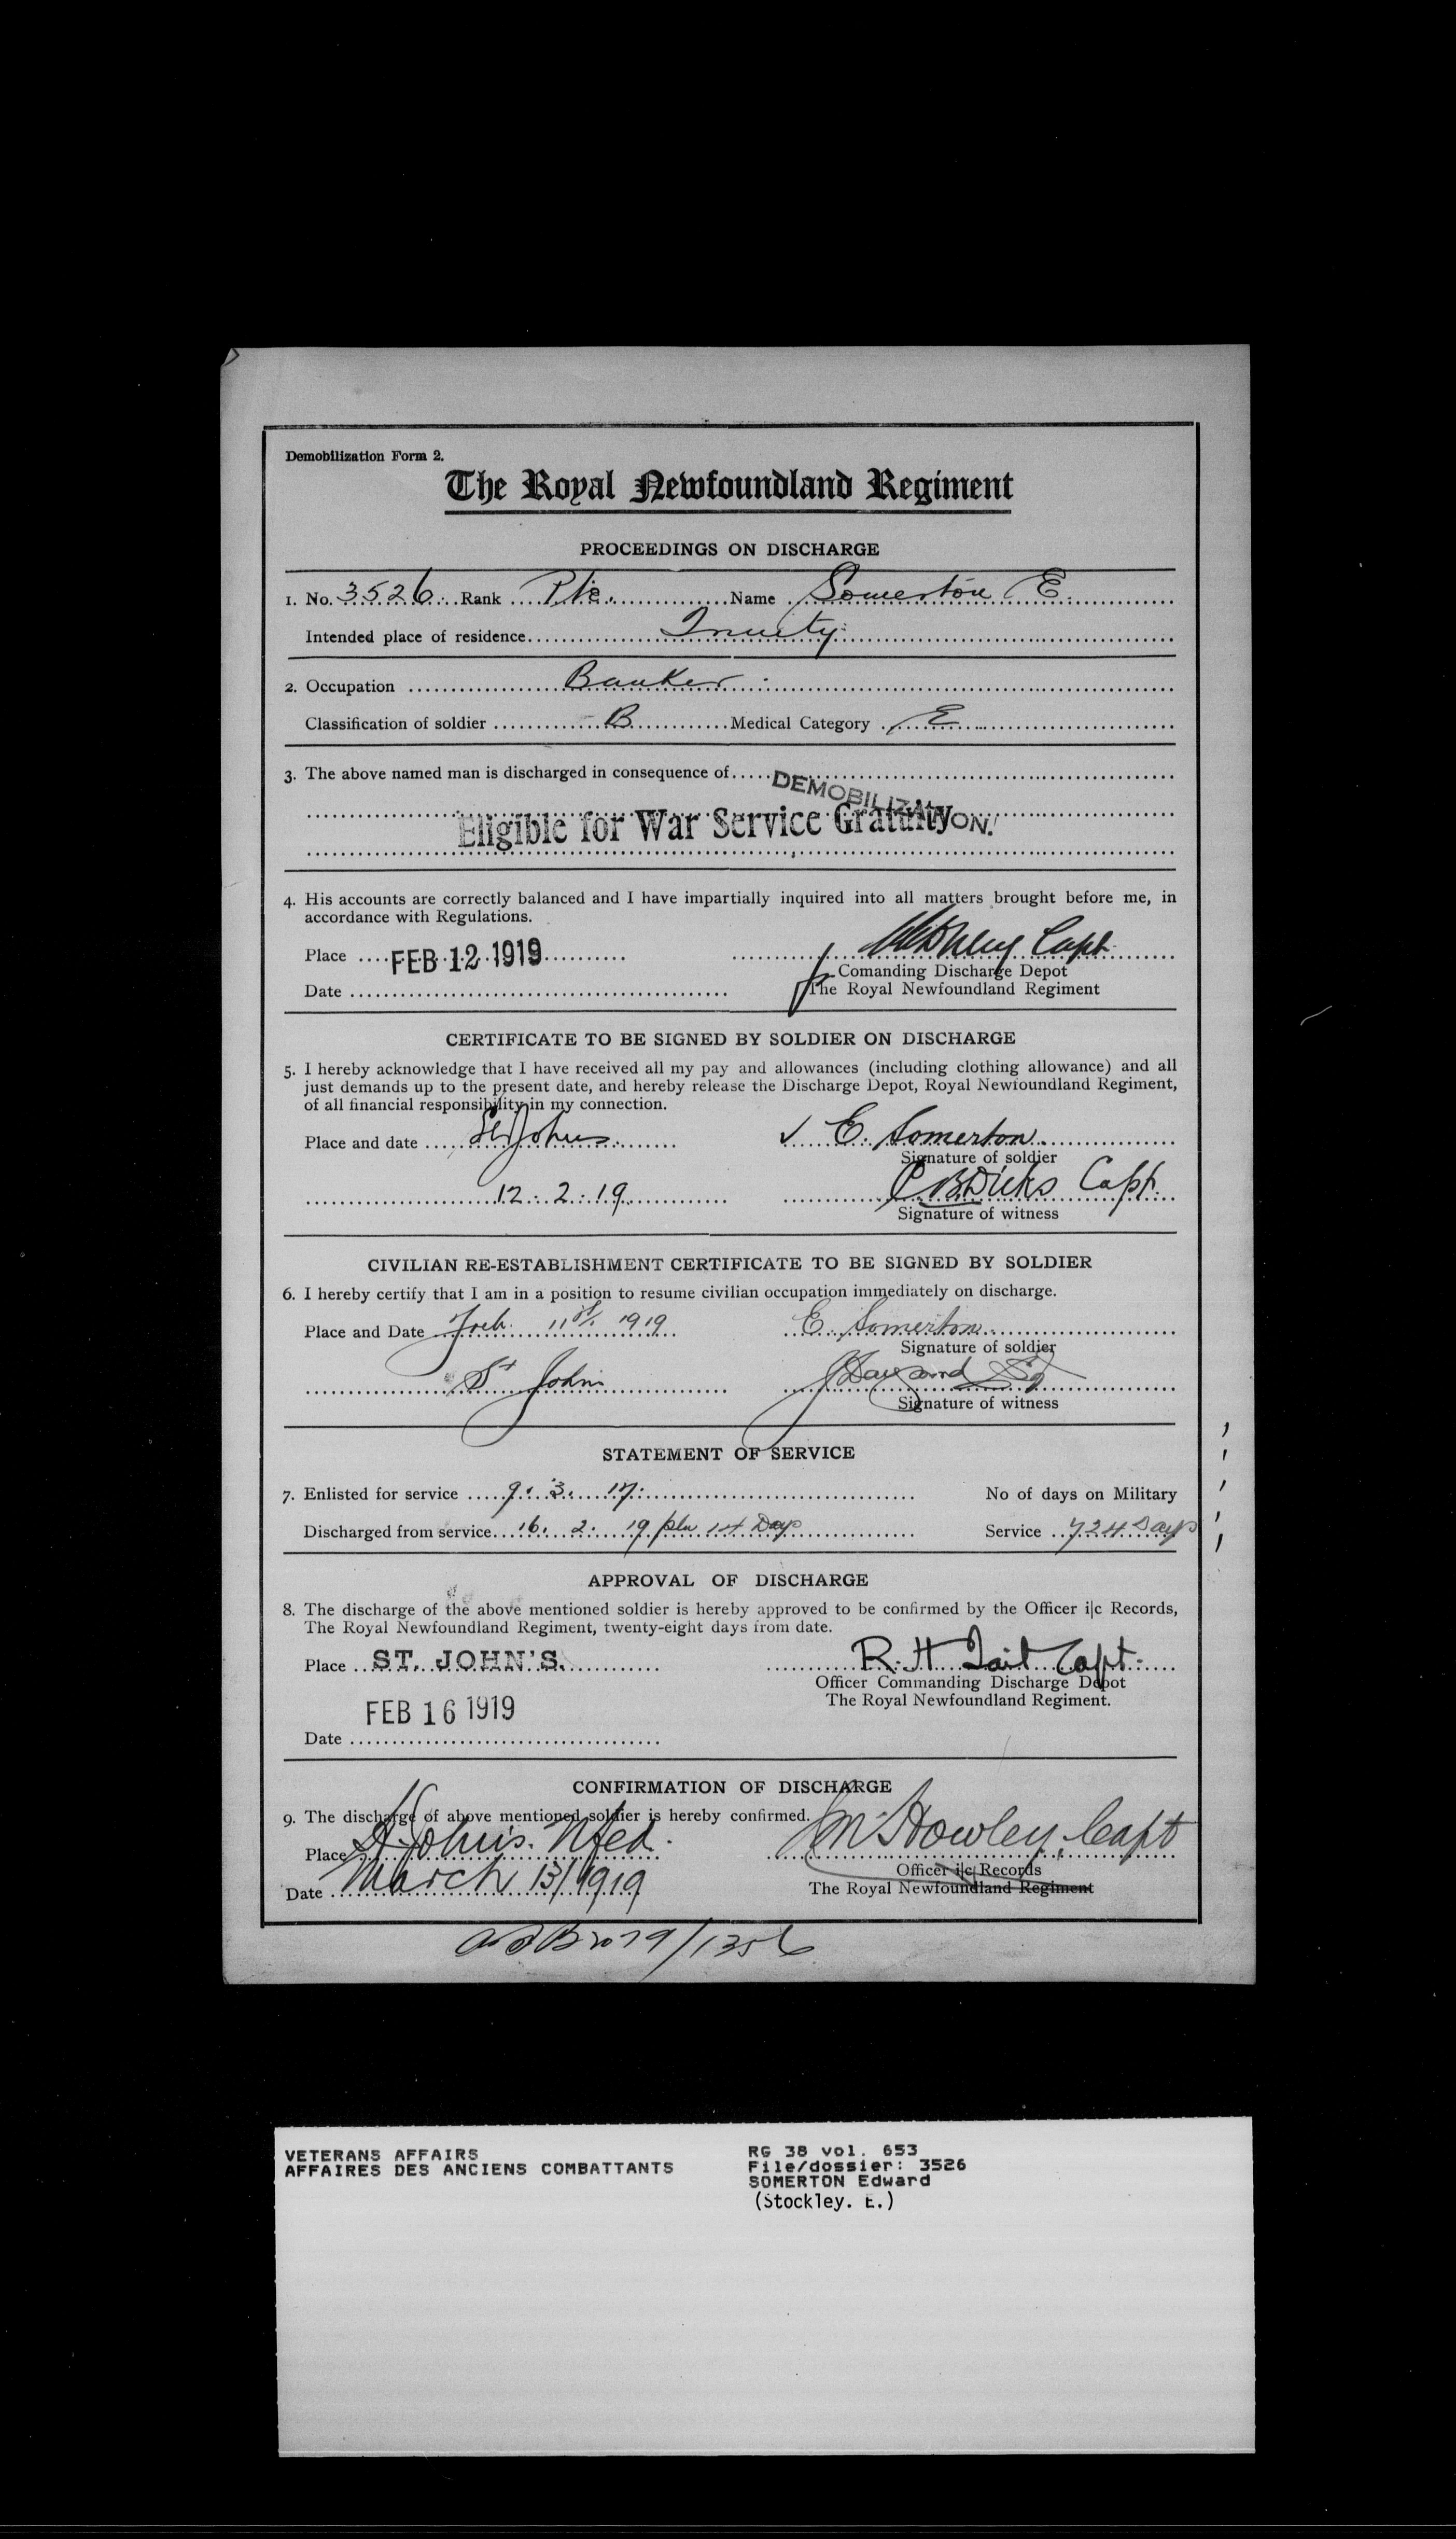 Demobilization Form 2.
The Royal Newfoundland Regiment
PROCEEDINGS ON DISCHARGE
1. No. 3526. Rank Pte. Name Somerton E.
Intended place of residence Trinity
2. Occupation Banker
Classification of soldier B Medical Category E
3. The above named man is discharged in consequence of DEMOBILIZATION.
Eligible for War Service Gratuity
4. His accounts are correctly balanced and I have impartially inquired into all matters brought before me, in
accordance with Regulations.
Place FEB 12 1919 Capt.
Comanding Discharge Depot
Date The Royal Newfoundland Regiment
CERTIFICATE TO BE SIGNED BY SOLDIER ON DISCHARGE
5. I hereby acknowledge that I have received all my pay and allowances (including clothing allowance) and all
just demands up to the present date, and hereby release the Discharge Depot, Royal Newfoundland Regiment,
of all financial responsibility in my connection.
Place and date St Johns. ✓ E. Somerton.
Signature of soldier
12. 2. 19. C B Dicks Capt.
Signature of witness
CIVILIAN RE-ESTABLISHMENT CERTIFICATE TO BE SIGNED BY SOLDIER
6. I hereby certify that I am in a position to resume civilian occupation immediately on discharge.
Place and Date Feb. 11st 1919 E. Somerton.
Signature of soldier
St Johns
Signature of witness
STATEMENT OF SERVICE
7. Enlisted for service 9. 3. 17. No of days on Military
Discharged from service 16. 2. 19 plu 14 Days Service 724 Days
APPROVAL OF DISCHARGE
8. The discharge of the above mentioned soldier is hereby approved to be confirmed by the Officer i|c Records,
The Royal Newfoundland Regiment, twenty-eight days from date.
Place ST. JOHN'S. R. H Tait Capt.
Officer Commanding Discharge Depot
The Royal Newfoundland Regiment.
FEB 16 1919
Date
CONFIRMATION OF DISCHARGE
9. The discharge of above mentioned soldier is hereby confirmed.
Place St. John's. Nfed. Howley, Capt
Officer i|c Records
Date March 13/1919 The Royal Newfoundland Regiment
2079/1356
VETERANS AFFAIRS
AFFAIRES DES ANCIENS COMBATTANTS
RG 38 vol. 653
File/dossier: 3526
SOMERTON Edward
(Stockley. E.)